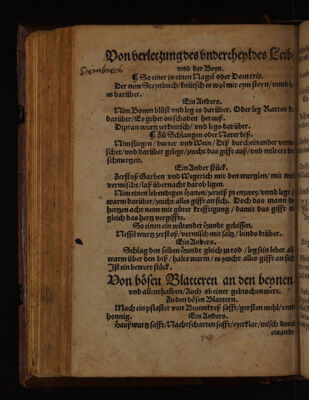 Von verletzung des vndercheyl des Leibs
vnd der Beyn.
Steinbrech
¶ So einer in einen Nagel oder Dorn trit.
Der nem Steynbrech/ knütsch es wol mit eym steyn/ vnnd leg
es darüber.
Ein Anders.
Nim Bonen blüst vnd leg es darüber. Oder leg Ratten
darüber/ Es gehet on schaden herauß.
Diptan wurtz zerknitsch/ vnd legs darüber.
¶ Zů Schlangen oder Nater biß.
Nim fürgen/ butter vnd Wein/ Diß durcheinander
schet/ vnd darüber gelegt/ zeucht das gifft auß/ vnd miltert den
schmertzen.
Ein Ander stück.
Zerstoß Garben vnd Wegerich mit den wurtzlen/ mit
vermischt/ laß übernacht darob ligen.
Nim einen lebendigen Hanen/ zerreiß jn entzwey/ vnnd leg
warm darüber/ zeucht alles gifft an sich. Doch das mann des
hertzen acht neme mit gůter krefftigung/ damit das gifft nit
gleich das hertz vergiffte.
So einen ein wůtender hundt gebissen.
Nessel wurtz zerstoß/ vermisch mit saltz/ binds drüber.
Ein Anders.
Schlag den selben hundt gleich zů tod/ leg sein leber also
warm über den biß/ halts warm/ es zeucht alles gifft an sich
Ist ein bewert stück.
Von bösen Blatteren an den beynen
vnd allenthalben/ Auch ob einer gebrochen were.
Zů den bösen Blattern.
Mach ein pflaster von Brunnkreß safft/ gersten mehl/ vnnd
honnig.
Ein Anders.
Haußwurtz safft/ Nachtschatten safft/ eyerklar/ misch durch
einander